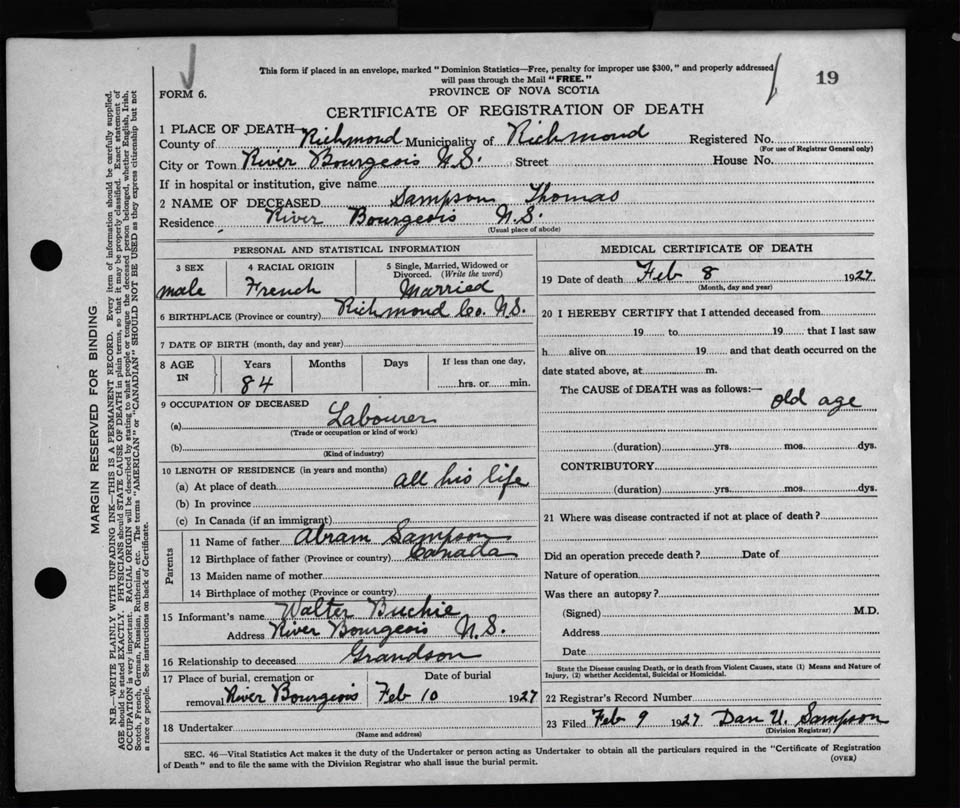 This form if placed in an envelope, marked "Dominion Statistics—Free, penalty for improper use $300," and properly addressed
will pass through the Mail "FREE."
19
FORM 6.
PROVINCE OF NOVA SCOTIA
CERTIFICATE OF REGISTRATION OF DEATH
1 PLACE OF DEATH—
County of Richmond Municipality of Richmond Registered No.
(For use of Registrar General only)
City or Town River Bourgeois N.S. Street House No.
If in hospital or institution, give name
2 NAME OF DECEASED Sampson Thomas
Residence River Bourgeois N.S.
(Usual place of abode)
PERSONAL AND STATISTICAL INFORMATION
3 SEX 4 RACIAL ORIGIN 5 Single, Married, Widowed or
Divorced. (Write the word)
male French Married
6 BIRTHPLACE (Province or country) Richmond Co. N.S.
7 DATE OF BIRTH (month, day and year)
8 AGE IN Years Months Days If less than one day,
84 hrs. or min.
9 OCCUPATION OF DECEASED
(a) Labourer
(Trade or occupation or kind of work)
(b)
(Kind of industry)
10 LENGTH OF RESIDENCE (in years and months)
(a) At place of death all his life
(b) In province
(c) In Canada (if an immigrant)
Parents
11 Name of father Abram Sampson
12 Birthplace of father (Province or country) Canada
13 Maiden name of mother
14 Birthplace of mother (Province or country)
15 Informant's name Walter Buchie
Address River Bourgeois N.S.
16 Relationship to deceased Grandson
17 Place of burial, cremation or Date of burial
removal River Bourgeois Feb 10 1927
18 Undertaker
(Name and address)
MEDICAL CERTIFICATE OF DEATH
19 Date of death Feb 8 1927
(Month, day and year)
20 I HEREBY CERTIFY that I attended deceased from
19 to 19 that I last saw
h alive on 19 and that death occurred on the
date stated above, at m.
The CAUSE of DEATH was as follows:—
old age
(duration) yrs. mos. dys.
CONTRIBUTORY
(duration) yrs. mos. dys.
21 Where was disease contracted if not at place of death?
Did an operation precede death? Date of
Nature of operation
Was there an autopsy?
(Signed) M.D.
Address
Date
State the Disease causing Death, or in death from Violent Causes, state (1) Means and Nature of
Injury, (2) whether Accidental, Suicidal or Homicidal.
22 Registrar's Record Number
23 Filed Feb 9 1927 Dan U. Sampson
(Division Registrar)
SEC. 46—Vital Statistics Act makes it the duty of the Undertaker or person acting as Undertaker to obtain all the particulars required in the "Certificate of Registration
of Death" and to file the same with the Division Registrar who shall issue the burial permit.
(OVER)
MARGIN RESERVED FOR BINDING
N.B.—WRITE PLAINLY WITH UNFADING INK—THIS IS A PERMANENT RECORD. Every item of information should be carefully supplied.
AGE should be stated EXACTLY. PHYSICIANS should STATE CAUSE OF DEATH in plain terms, so that it may be properly classified. Exact statement of
OCCUPATION is very important. RACIAL ORIGIN will be described by stating to what people or tongue the deceased person belonged, whether English, Irish,
Scotch, French, German, Russian, Ruthenian, etc. The terms "AMERICAN" or "CANADIAN" SHOULD NOT BE USED as they express citizenship but not
a race or people. See instructions on back of Certificate.